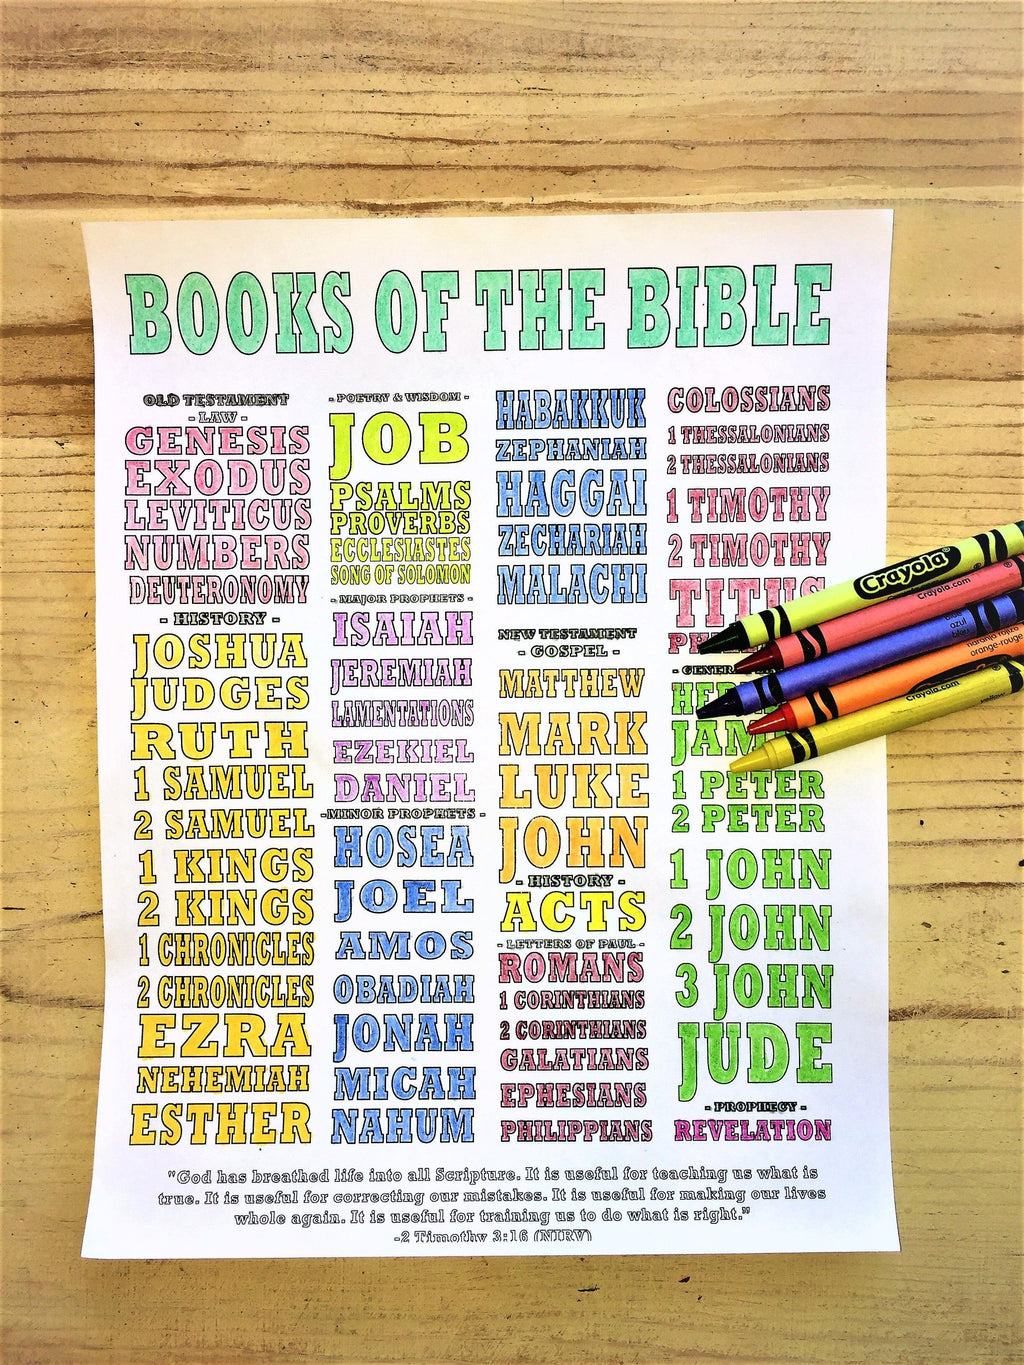 BOOKS OF THE BIBLE
OLD TESTAMENT
- LAW -
GENESIS
EXODUS
LEVITICUS
NUMBERS
DEUTERONOMY
- HISTORY -
JOSHUA
JUDGES
RUTH
1 SAMUEL
2 SAMUEL
1 KINGS
2 KINGS
1 CHRONICLES
2 CHRONICLES
EZRA
NEHEMIAH
ESTHER
- POETRY & WISDOM -
JOB
PSALMS
PROVERBS
ECCLESIASTES
SONG OF SOLOMON
- MAJOR PROPHETS -
ISAIAH
JEREMIAH
LAMENTATIONS
EZEKIEL
DANIEL
-MINOR PROPHETS -
HOSEA
JOEL
AMOS
OBADIAH
JONAH
MICAH
NAHUM
HABAKKUK
ZEPHANIAH
HAGGAI
ZECHARIAH
MALACHI
NEW TESTAMENT
- GOSPEL -
MATTHEW
MARK
LUKE
JOHN
- HISTORY -
ACTS
- LETTERS OF PAUL -
ROMANS
1 CORINTHIANS
2 CORINTHIANS
GALATIANS
EPHESIANS
PHILIPPIANS
COLOSSIANS
1 THESSALONIANS
2 THESSALONIANS
1 TIMOTHY
2 TIMOTHY
TITUS
1 PETER
2 PETER
1 JOHN
2 JOHN
3 JOHN
JUDE
- PROPHECY -
REVELATION
"God has breathed life into all Scripture. It is useful for teaching us what is
true. It is useful for correcting our mistakes. It is useful for making our lives
whole again. It is useful for training us to do what is right."
-2 Timothy 3:16 (NIRV)
Crayola®
Crayola.com
azul
orange-rouge
Crayola.com
yellow